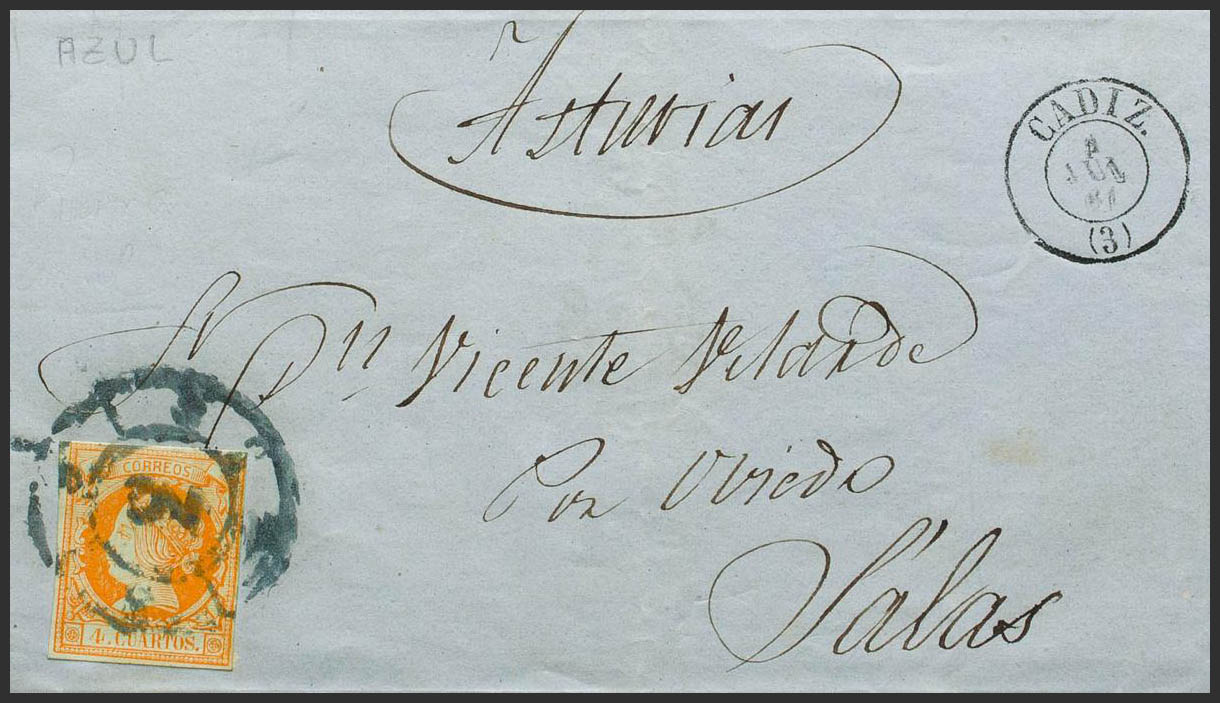 AZUL
Asturias
CADIZ.
JUL
61
(3)
Sr Dn Vicente Velarde
Por Oviedo
Sálas
CORREOS
4. CUARTOS.